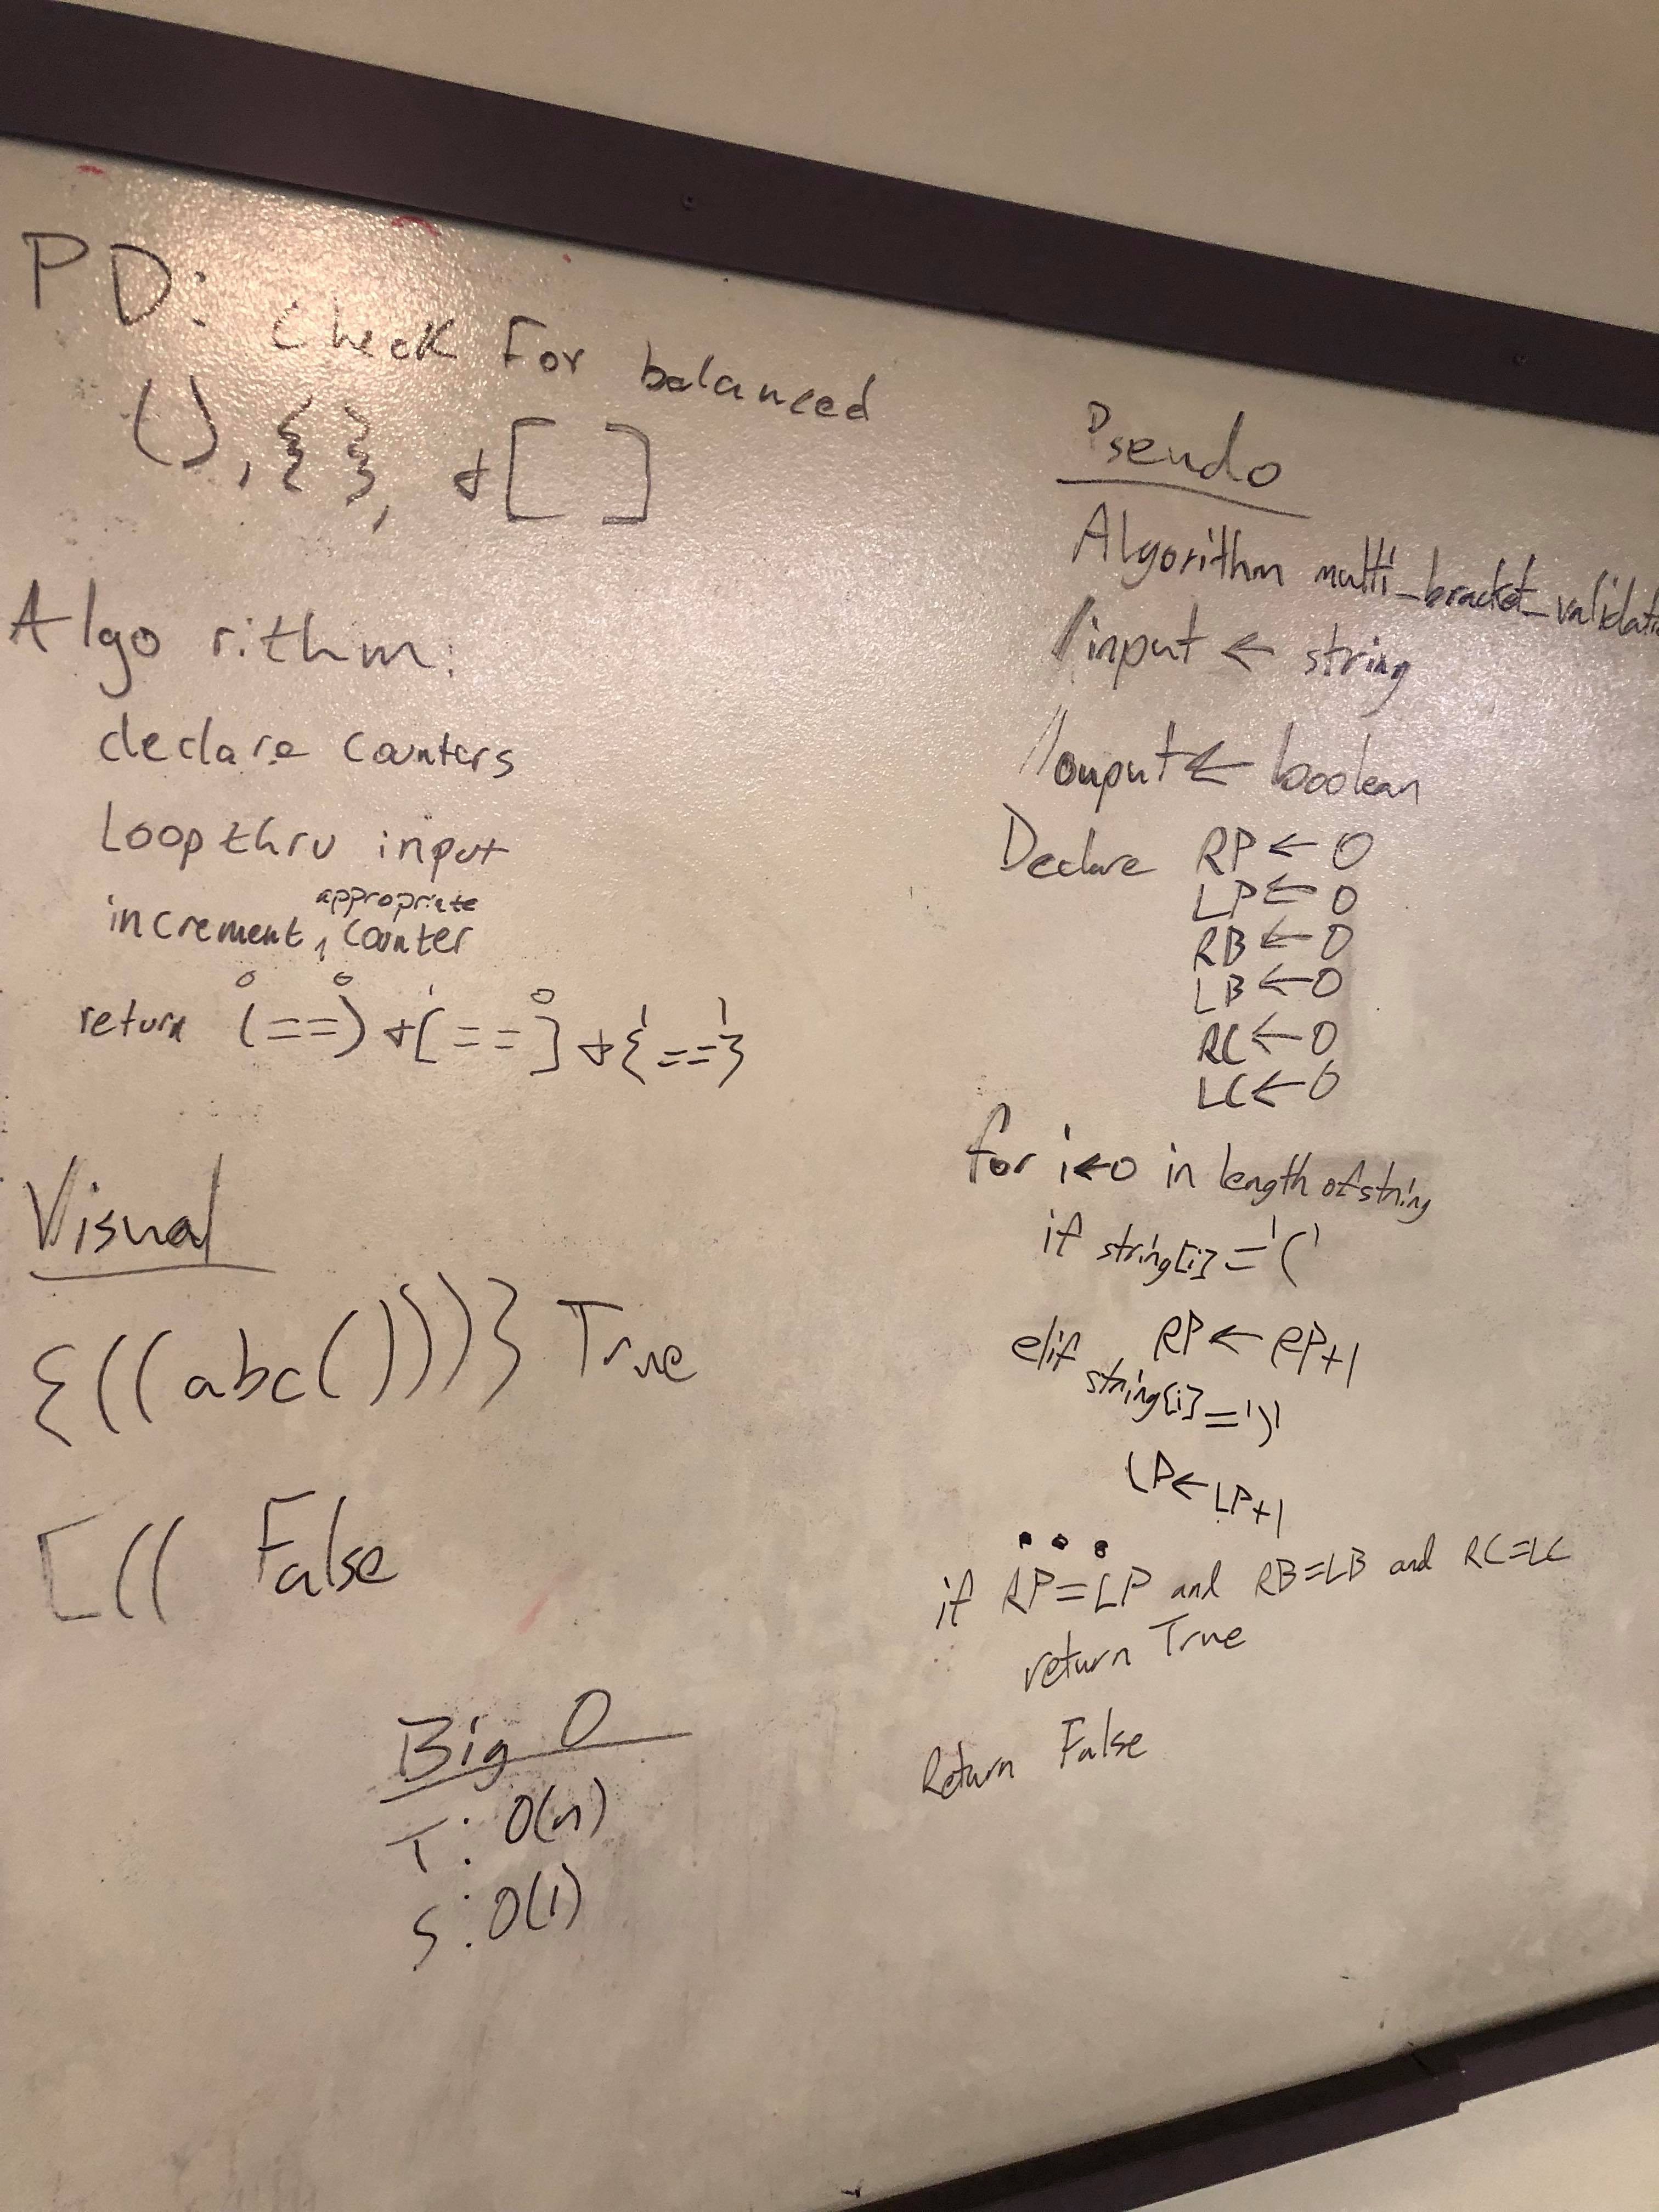 PD: Check For balanced
(), {}, + [ ]
Algorithm:
declare counters
Loop thru input
appropriate
increment, counter
0 0 1 0 1 1
return (==) + [==] + {==}
Visual
{((abc()))} True
[(( False
Big O
T: O(n)
S: O(1)
Pseudo
Algorithm multi_bracket_validati
// input ← string
// ouput ← boolean
Declare RP ← 0
LP ← 0
RB ← 0
LB ← 0
RC ← 0
LC ← 0
for i ← 0 in length of string
if string[i] = '('
RP ← RP+1
elif string[i] = ')'
LP ← LP+1
...
if RP = LP and RB = LB and RC = LC
return True
Return False